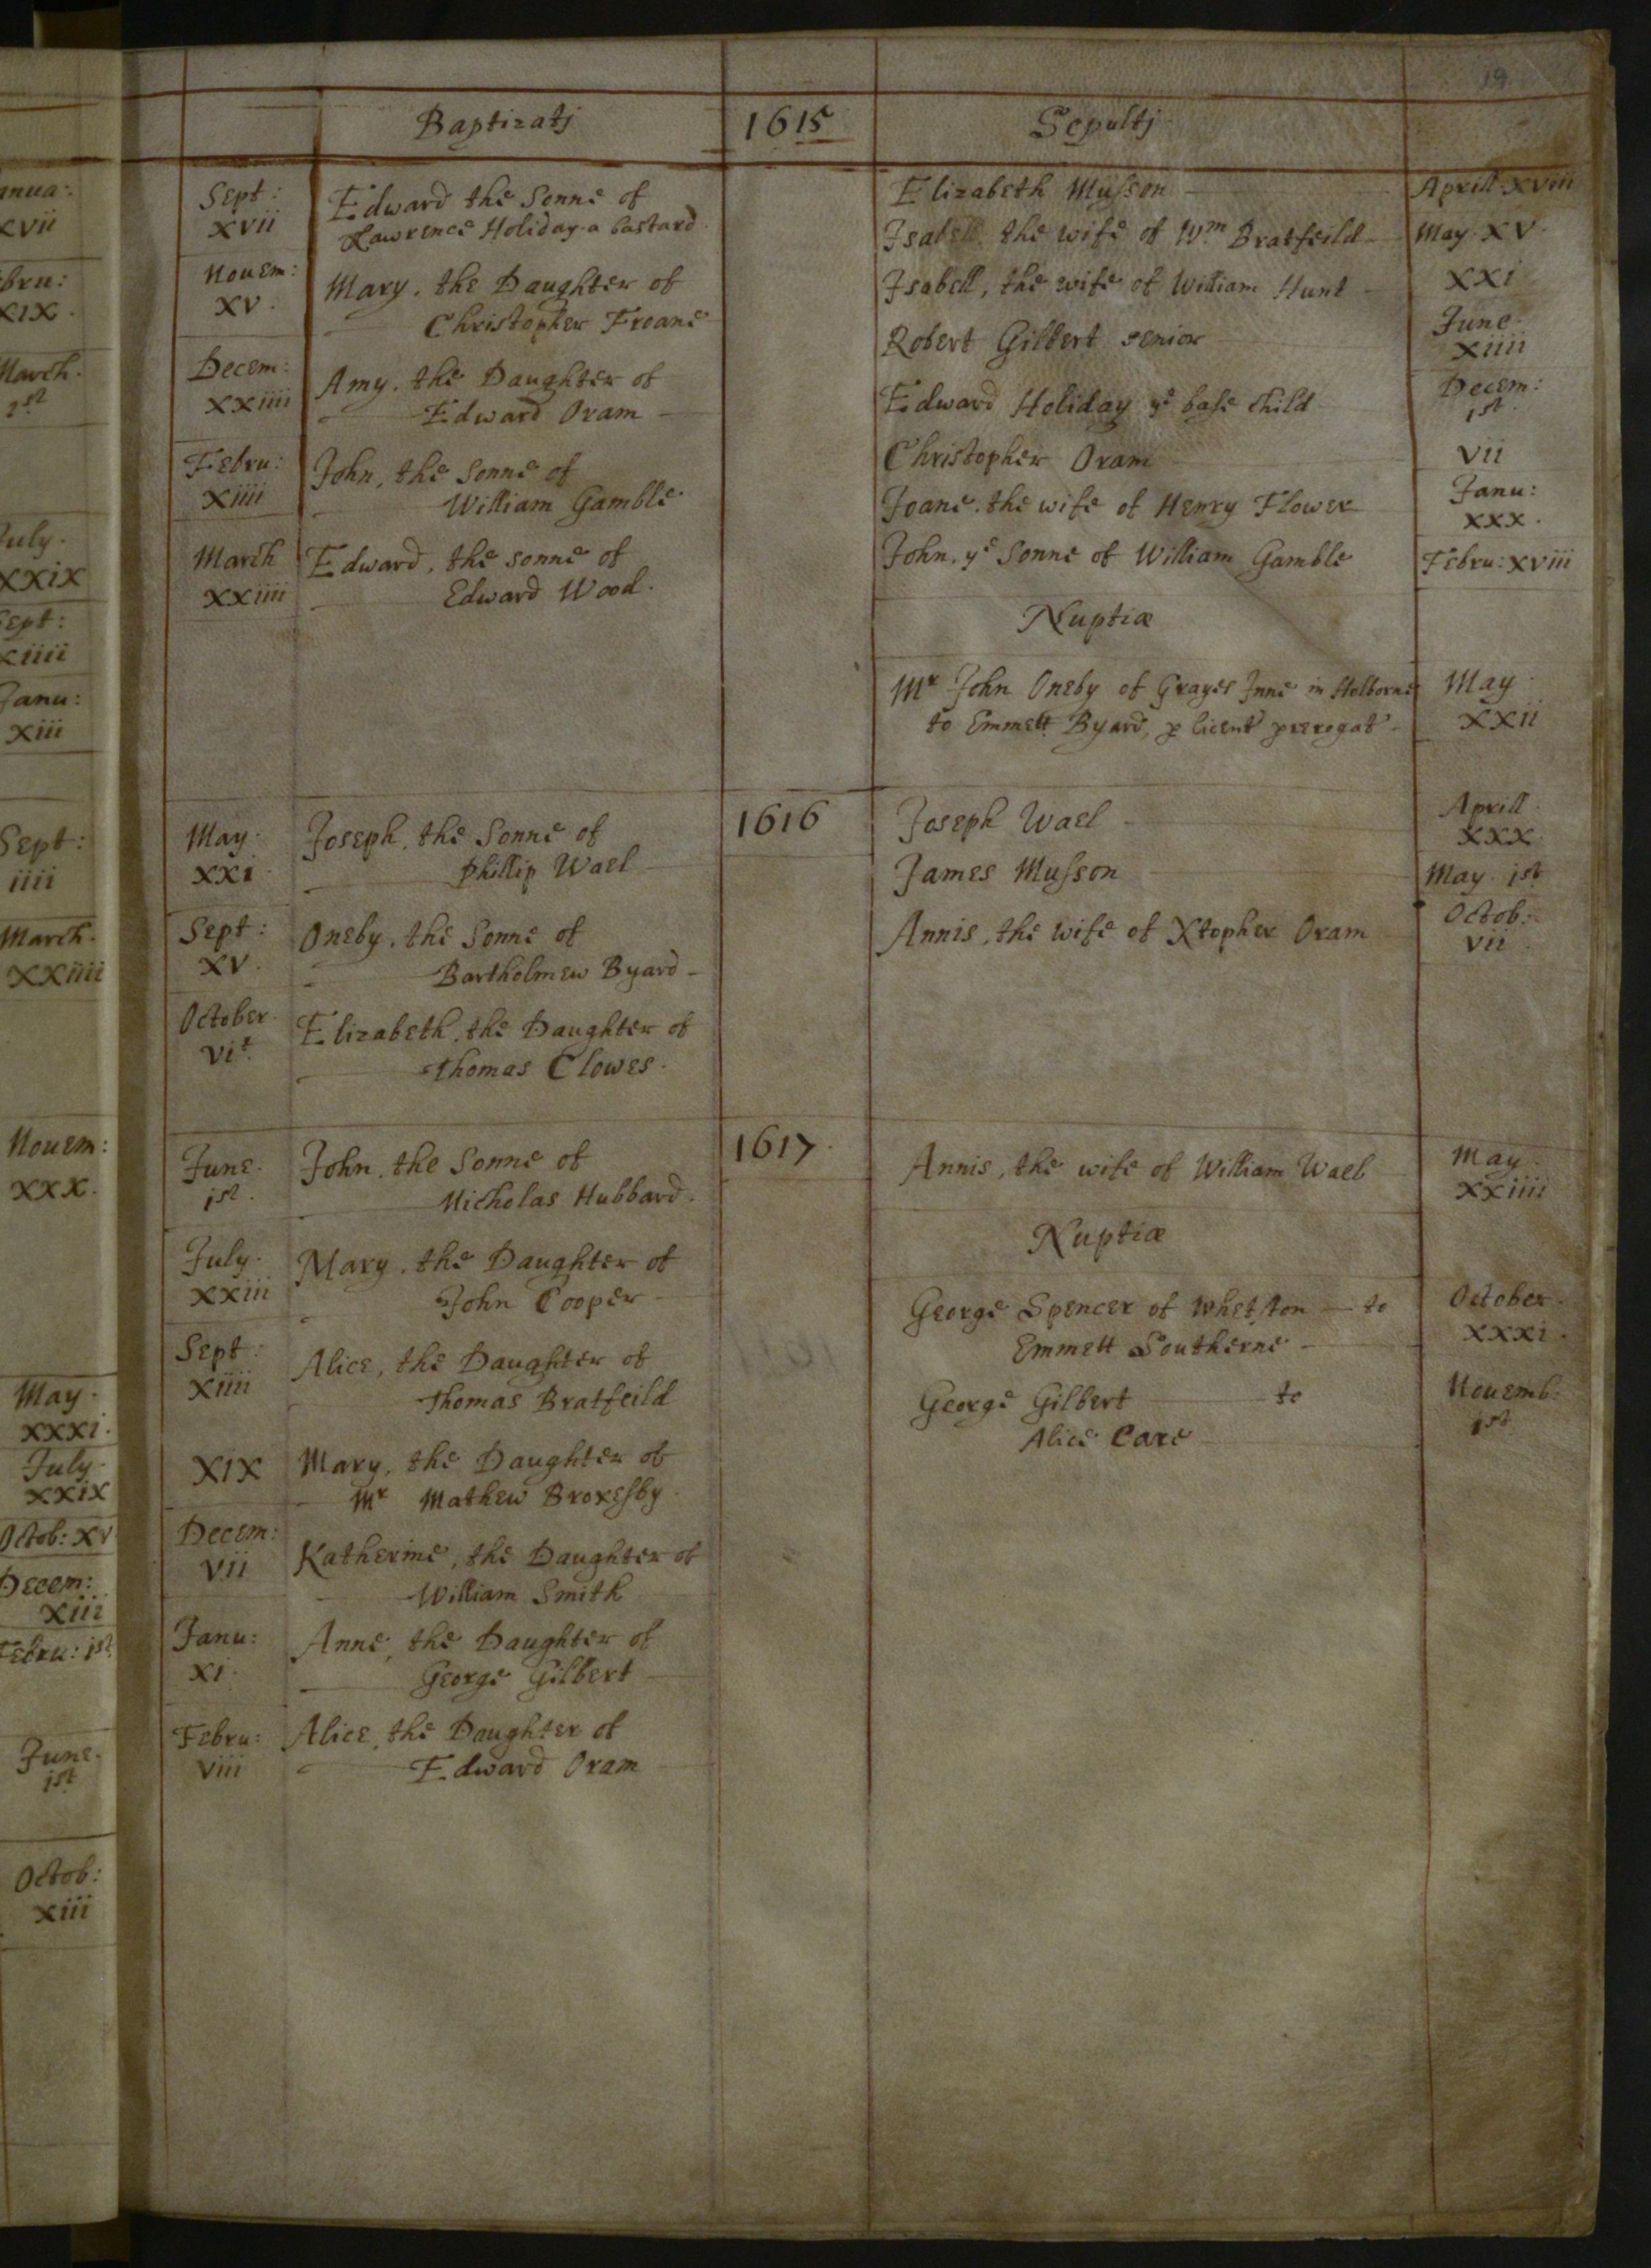 anua:
xvii
bru:
xix.
March.
1st
July.
xxix
Sept:
xiiii
Janu:
xiii
Sept:
iiii
March.
xxiiii
Nouem:
xxx.
May.
xxxi.
July.
xxix
Octob: xv
Decem:
xiii
Febru: 1st
June.
1st
Octob:
xiii
19
Baptizatj
1615
Sepultj
Sept:
xvii
Edward the Sonne of
Lawrence Holiday a bastard.
Nouem:
xv.
Mary, the Daughter of
Christopher Froane
Decem:
xxiiii
Amy, the Daughter of
Edward Oram
Febru:
xiiii
John, the Sonne of
William Gamble
March
xxiiii
Edward, the sonne of
Edward Wood.
Elizabeth Musson
Aprill xviii
Isabell, the wife of Wm Bratfeild
May. xv.
Isabell, the wife of William Hunt
xxi
Robert Gilbert senior
June.
xiiii
Edward Holiday ye base child
Decem:
1st.
Christopher Oram
vii
Joane, the wife of Henry Flower
Janu:
xxx.
John, ye Sonne of William Gamble
Febru: xviii
Nuptiæ
Mr John Oneby of Grayes Inne in Holborne
to Emmett Byard, p licent prerogat
May
xxii
1616
May.
xxi
Joseph, the Sonne of
Phillip Wael
Sept:
xv.
Oneby, the Sonne of
Bartholmew Byard
October.
vit.
Elizabeth, the Daughter of
Thomas Clowes.
Joseph Wael
Aprill
xxx
James Musson
May. 1st
Annis, the wife of Xtopher Oram
Octob:
vii
1617.
June.
1st.
John, the Sonne of
Nicholas Hubbard.
July.
xxiii
Mary, the Daughter of
John Cooper
Sept:
xiiii
Alice, the Daughter of
Thomas Bratfeild
xix
Mary, the Daughter of
Mr Mathew Broxesby.
Decem:
vii
Katherine, the Daughter of
William Smith
Janu:
xi.
Anne, the Daughter of
George Gilbert
Febru:
viii
Alice, the Daughter of
Edward Oram
Annis, the wife of William Wael
May.
xxiiii
Nuptiæ
George Spencer of Whetston to
Emmett Southerne
October.
xxxi.
George Gilbert to
Alice Care
Nouemb:
1st